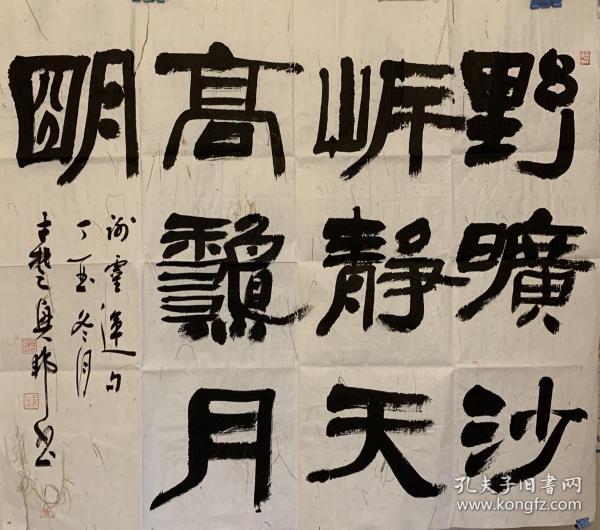 野曠沙
岸靜天
高龝月
明
謝靈運句
冬月
古楚興邦書
孔夫子旧书网
www.kongfz.com